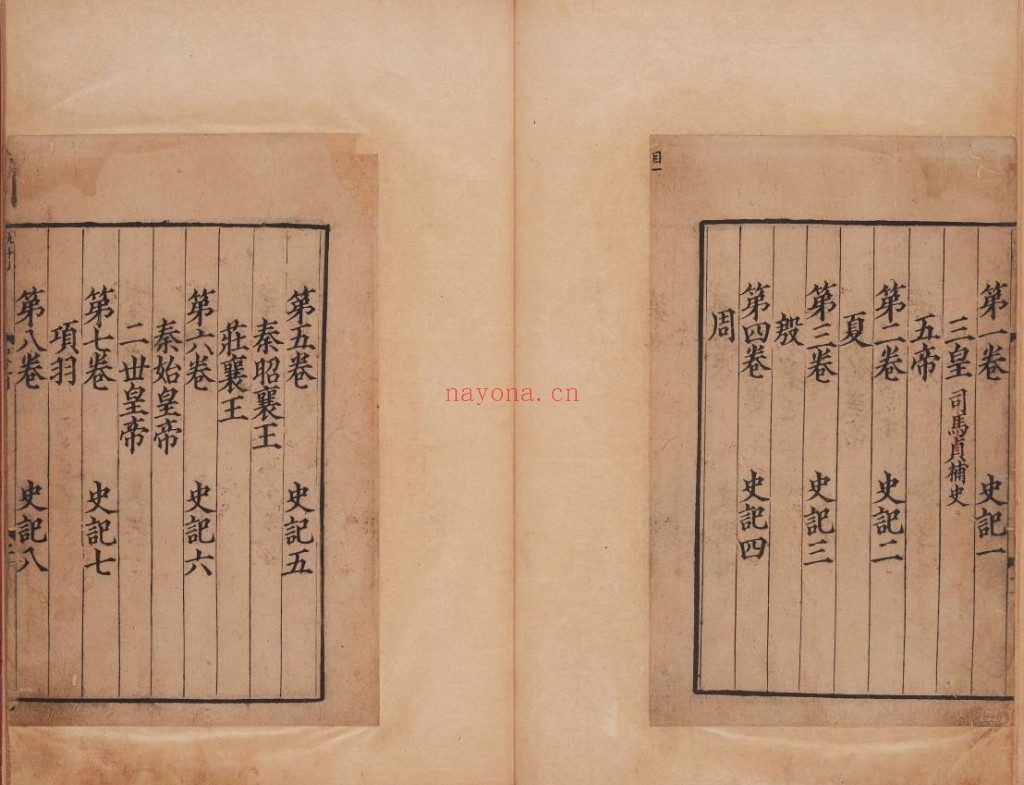 目一
第一卷 史記一
三皇 司馬貞補史
五帝
第二卷 史記二
夏
第三卷 史記三
殷
第四卷 史記四
周
第五卷 史記五
秦昭襄王
莊襄王
第六卷 史記六
秦始皇帝
二世皇帝
第七卷 史記七
項羽
第八卷 史記八
nayona.cn